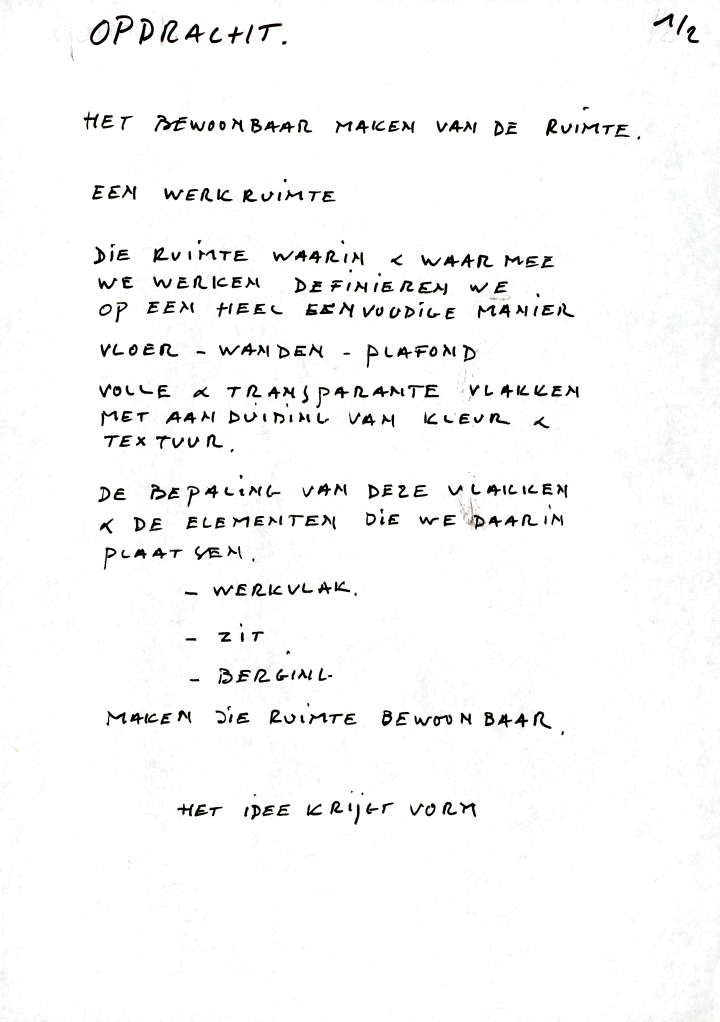 OPDRACHT.
1/2
HET BEWOONBAAR MAKEN VAN DE RUIMTE.
EEN WERKRUIMTE
DIE RUIMTE WAARIN & WAARMEE
WE WERKEN DEFINIEREN WE
OP EEN HEEL EENVOUDIGE MANIER
VLOER - WANDEN - PLAFOND
VOLLE & TRANSPARANTE VLAKKEN
MET AANDUIDING VAN KLEUR &
TEXTUUR.
DE BEPALING VAN DEZE VLAKKEN
& DE ELEMENTEN DIE WE DAARIN
PLAATSEN.
- WERKVLAK.
- ZIT
- BERGING
MAKEN DIE RUIMTE BEWOONBAAR.
HET IDEE KRIJGT VORM